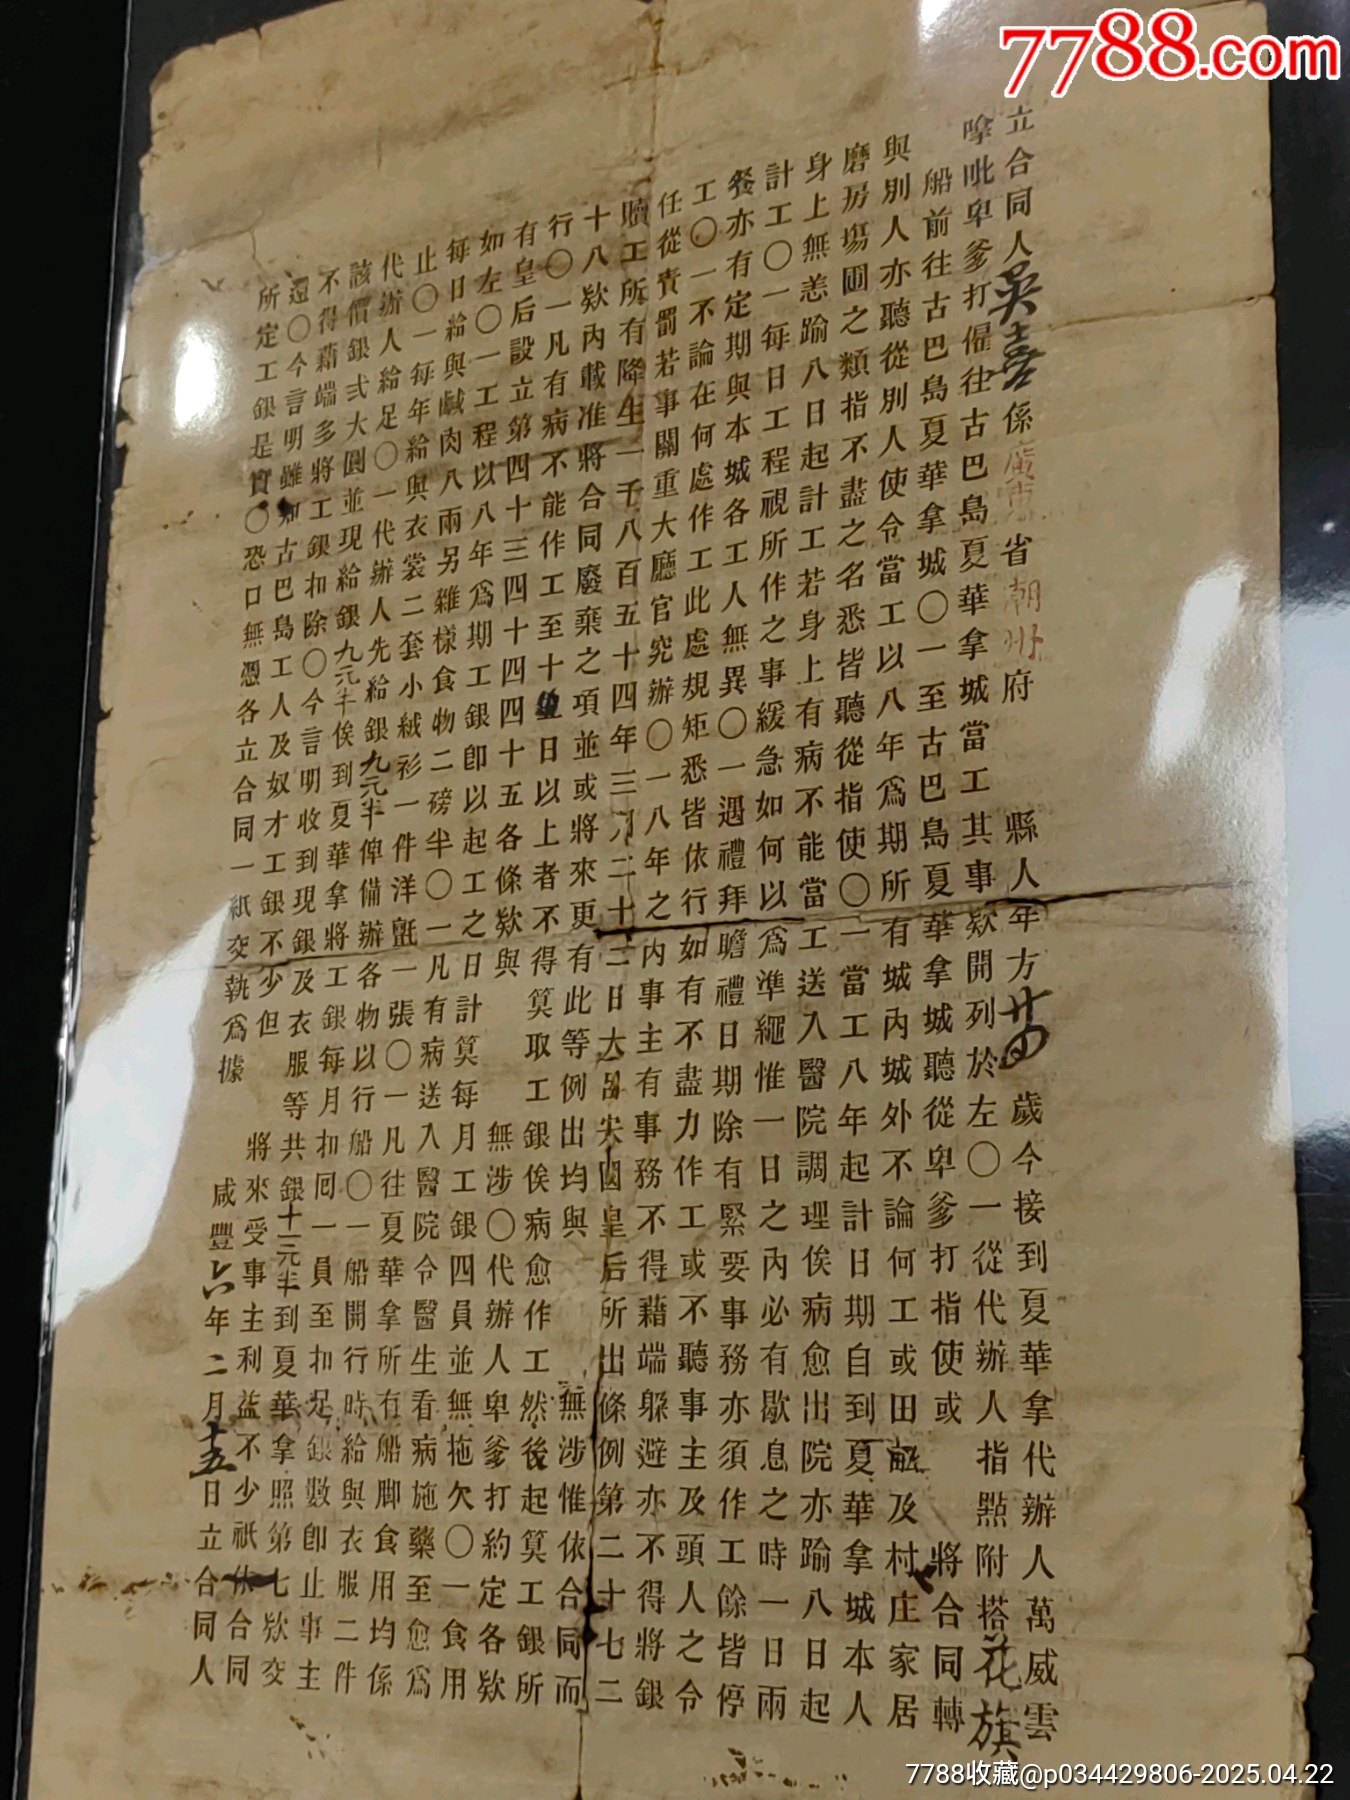 7788.com
立合同人吳喜係廣東省潮州府 縣人年方廿四歲今接到夏華拿代辦人萬威雲
嗱吡卑爹打僱往古巴島夏華拿城當工其事欵開列於左〇一從代辦人指點附搭花旗
船前往古巴島夏華拿城〇一至古巴島夏華拿城聽從卑爹打指使或將合同轉
與別人亦聽從別人使令當工以八年爲期所有城內城外不論何工或田畝及村庄家居
磨房塲圃之類指不盡之名悉皆聽從指使〇一當工八年起計日期自到夏華拿城本人
身上無恙踰八日起計工若身上有病不能當工送入醫院調理俟病愈出院亦踰八日起
計工〇一每日工程視所作之事緩急如何以爲準繩惟一日之內必有歇息之時一日兩
餐亦有定期與本城各工人無異〇一遇禮拜瞻禮日期除有緊要事務亦須作工餘皆停
工〇一不論在何處作工此處規矩悉皆依行如有不盡力作工或不聽事主及頭人之令
任從責罰若事關重大廳官究辦〇一八年之內事主有事務不得藉端躲避亦不得將銀
贖工所有降生一千八百五十四年三月二十二日大呂宋國皇后所出條例第二十七二
十八欵內載准將合同廢棄之項並或將來更有此等例出均與 無涉惟依合同而
行〇一凡有病不能作工至十五日以上者不得算取工銀俟病愈作工然後起算工銀所
有皇后設立第四十三四十四四十五各條欵與 無涉〇代辦人卑爹打約定各欵
如左〇一工程以八年爲期工銀卽以起工之日計算每月工銀四員並無拖欠〇一食用
每日給與鹹肉八兩另雜樣食物二磅半〇一凡有病送入醫院令醫生看病施藥至愈爲
止〇一每年給與衣裳二套小絨衫一件洋氈一張〇一凡往夏華拿所有船脚食用均係
代辦人給足〇一代辦人先給銀九元半俾備辦各物以行船〇一船開行時給與衣服二件
該價銀弍大圓並現給銀九元半俟到夏華拿將工銀每月扣囘一員至扣足銀數卽止事主
不得藉端多將工銀扣除〇今言明收到現銀及衣服等共銀十一元半到夏華拿照第七欵交
還〇今言明雖知古巴島工人及奴才工銀不少但 將來受事主利益不少祇依合同
所定工銀是實〇恐口無憑各立合同一紙交執爲據
咸豐六年二月十五日立合同人
7788收藏@p034429806-2025.04.22